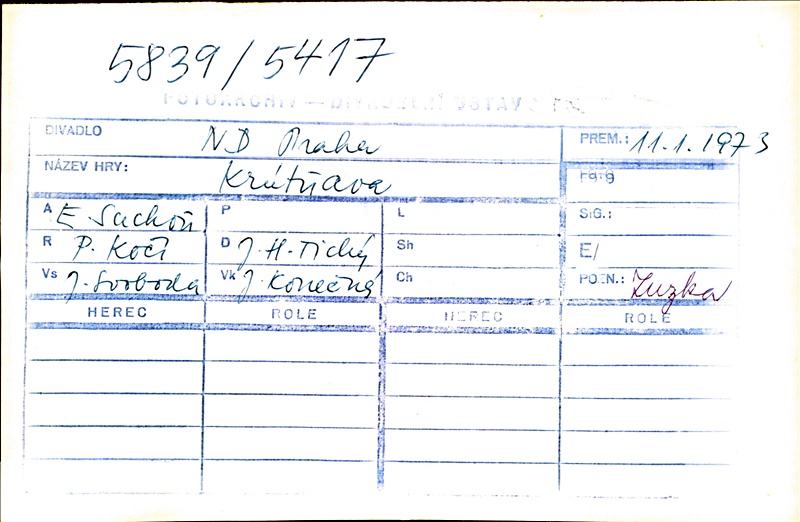 5839/5417
FOTOARCHIV — DIVADELNÍ ÚSTAV
DIVADLO ND Praha PREM.: 11.1.1973
NÁZEV HRY: Krútňava
A E. Suchoň P L SIG.:
R P. Kočí D J. H. Tichý Sh E/
Vs J. Svoboda Vk J. Konečná Ch POZN.: Zuzka
HEREC ROLE HEREC ROLE